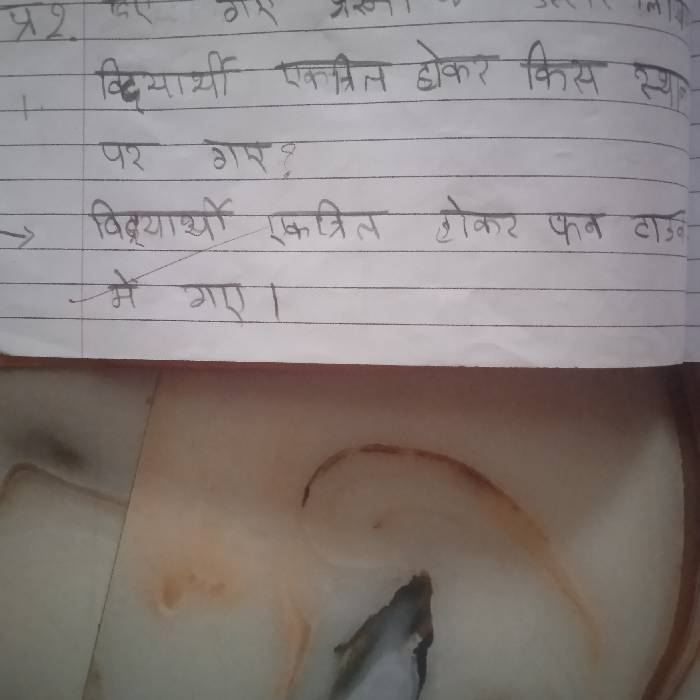 प्र२. दिए गए प्रश्नों के उत्तर
1. विद्यार्थी एकत्रित होकर किस स्थान
पर गए?
→ विद्यार्थी एकत्रित होकर फन टाउन
में गए।